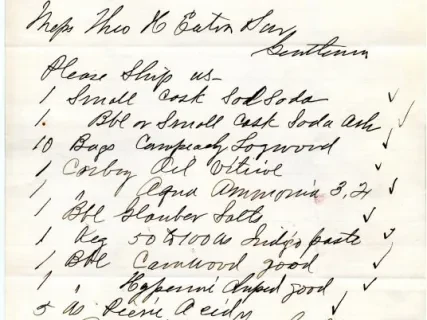 Messrs Theo H Eaton Son
Gentlemen
Please Ship us—
1 Small Cask Sal Soda
1. Bbl or Small Cask Soda Ash
10 Bags Campeachy Logwood
1 Carboy Oil Vitriol
1 " Aqua Ammonia 3.F
1 Bbl Glauber Salts
1 Keg 50 to 100 lbs Indigo paste
1 Bbl Camwood good
1 " Hypernic good
5 lbs Picric Acid